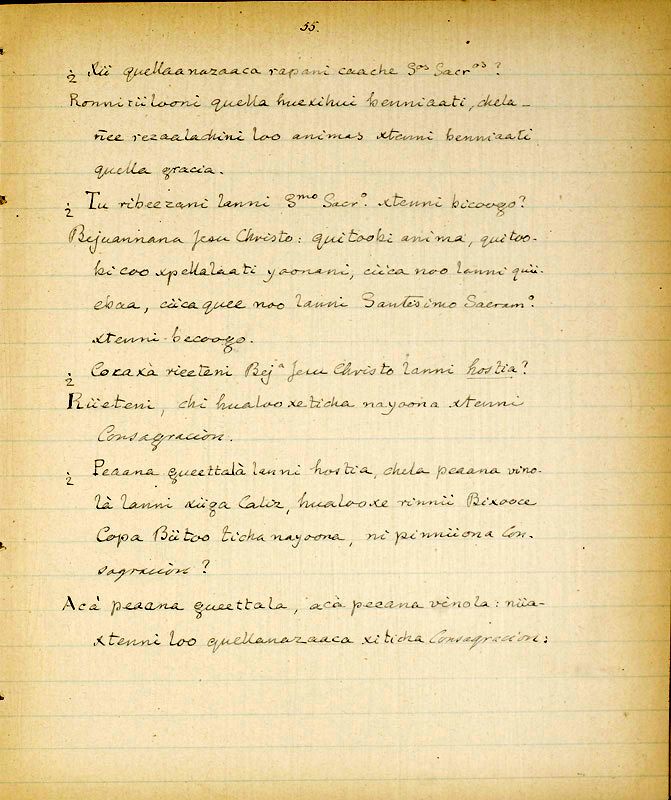 55.
¿ Xii quellaanazaaca rapani caache Sos Sacros?
Ronni tii looni quella huexihui benniaati, chela-
ñee rezaalachini loo animas xtenni benniaati
quella gracia.
¿ Tu ribeezani lanni Smo Sacro. xtenni bicoogo?
Bejuannana Jesu Christo: quitoobi anima, quitoo-
bi coo xpellalaati yoonani, ciica noo lanni quii-
ebaa, ciica quee noo lanni Santesimo Sacramo.
xtenni becoogo.
¿ Coraxà rieeteni Beja Jesu Christo lanni hostia?
Riieteni, chi hualoo xeticha nayoona xtenni
Consagraciòn.
¿ Peaana gueettalà lanni hostia, chela peaana vino-
là lanni xiiga Caliz, hualooxe rinnii Bixooce
Copa Biitoo ticha nayoona, ni pinniiona Con-
sagraciòn?
Acà peaana gueettala, acà peeana vinola: niia-
xtenni loo quellanazaaca xiticha Consagracion: